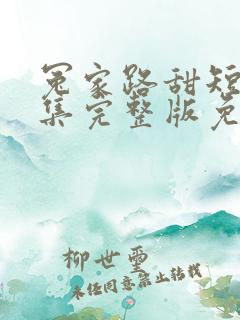 冤家路甜短
集完整版免
柳世玺
未经同意禁止转载